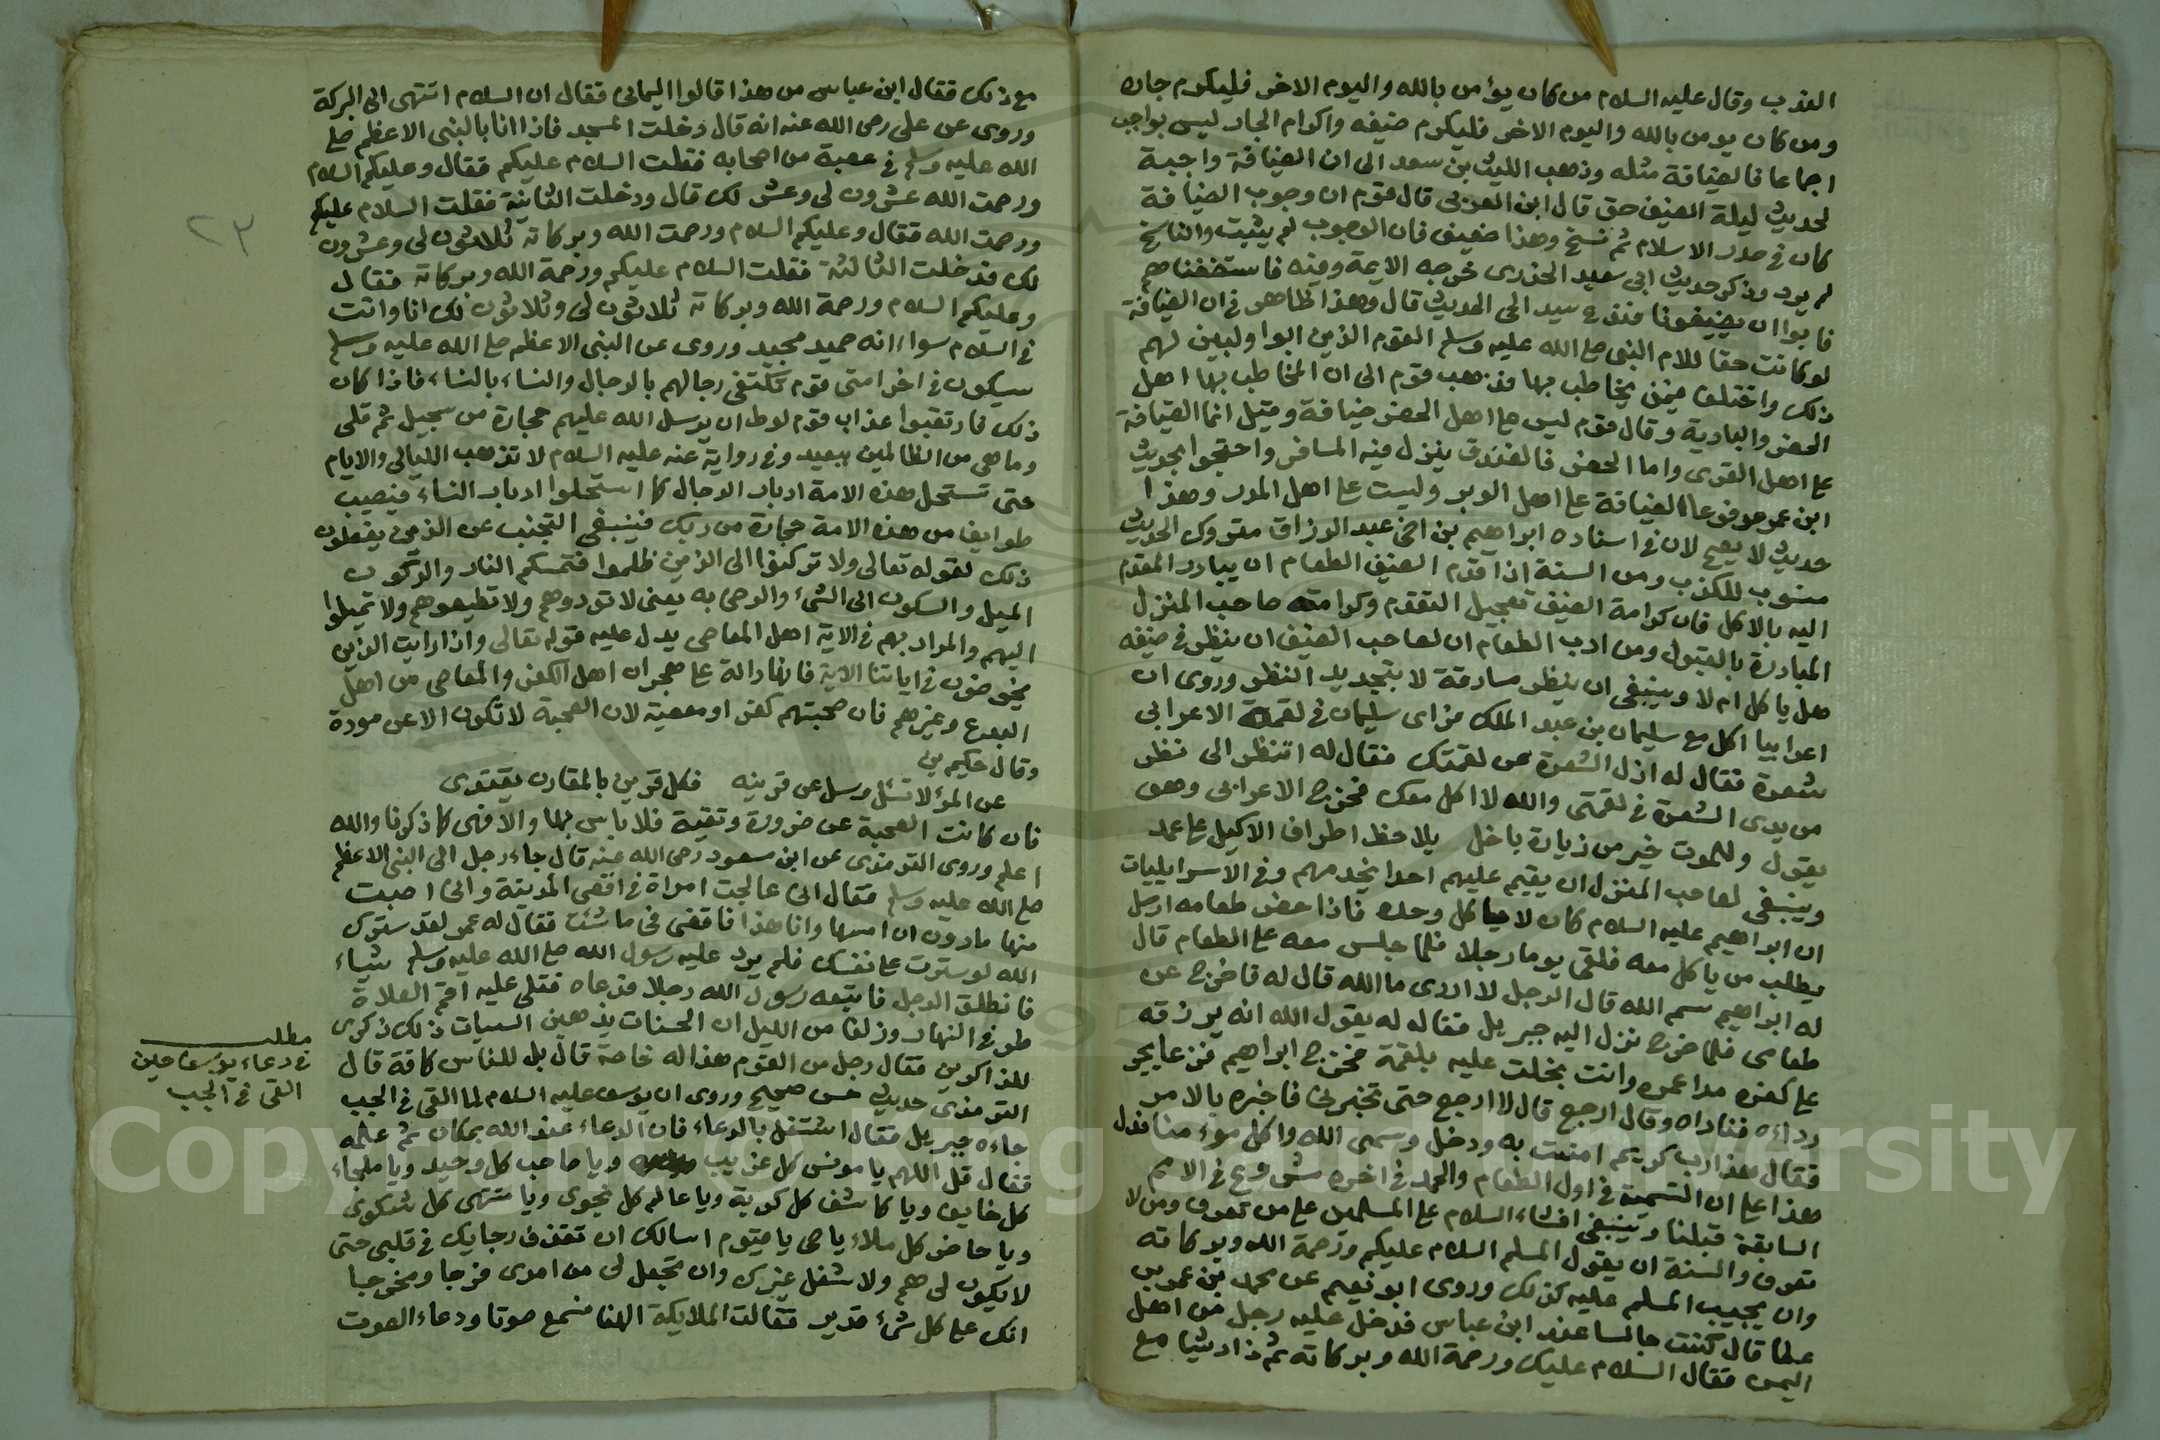 الغرب وقال عليه السلام من كان يؤمن بالله واليوم الاخر فليكرم جاره
ومن كان يومن بالله واليوم الاخر فليكرم ضيفه واكرام الجار ليس بواجب
اجماعا فالضيافة مثله وذهب الليث بن سعد الى ان الضيافة واجبة
لحديث ليلة الضيف حق قال ابن العربى قال قوم ان وجوب الضيافة
كان فى صدر الاسلام ثم نسخ وهذا ضعيف فان الوجوب لم يثبت والناسخ
لم يرد وذكر حديث ابى سعيد الخدرى خرجه الايمة وفيه فاستضفناهم
فابوا ان يضيفونا فلدغ سيد الحى الحديث قال وهذا ظاهر فى ان الضيافة
لو كانت حقا للام النبى صلع الله عليه وسلم القوم الذين ابوا ولبين لهم
ذلك واختلف فيمن يخاطب بها فذهب قوم الى ان المخاطب بها اهل
الحضر والبادية وقال قوم ليس على اهل الحضر ضيافة وقيل انما الضيافة
على اهل القرى واما الحضر فالفندق ينزل فيه المسافر واحتجوا بحديث
ابن عمر مرفوعا الضيافة على اهل الوبر وليست على اهل المدر وهذا
حديث لا يصح لان فى اسناده ابراهيم بن اخى عبد الرزاق متروك الحديث
منسوب للكذب ومن السنة اذا قدم الضيف الطعام ان يبادر المقدم
اليه بالاكل فان كرامة الضيف تعجيل التقدم وكرامة صاحب المنزل
المبادرة بالقبول ومن ادب الطعام ان لصاحب الضيف ان ينظر فى ضيفه
هل ياكل ام لا وينبغى ان ينظر مسارقة لا بتجديد النظر وروى ان
اعرابيا اكل مع سليمان بن عبد الملك فراى سليمان فى لقمة الاعرابى
شعرة فقال له ازل الشعرة عن لقمتك فقال له اتنظر الى نظر
من يرى الشعرة فى لقمتى والله لا اكل معك فخرج الاعرابى وهو
يقول وللموت خير من زيارة باخل يلاحظ اطراف الاكيل على عمد
وينبغى لصاحب المنزل ان يقيم عليهم احدا يخدمهم وفى الاسرايليات
ان ابراهيم عليه السلام كان لا ياكل وحده فاذا حضر طعامه ارسل
يطلب من ياكل معه فلقى يوما رجلا فلما جلس معه على الطعام قال
له ابراهيم سم الله قال الرجل لا ادرى ما الله قال له فاخرج عن
طعامى فلما خرج نزل اليه جبريل فقال له يقول الله انه يرزقه
على كفره مدا عمره وانت بخلت عليه بلقمة فخرج ابراهيم فزعا يجر
رداءه فناداه وقال ارجع قال لا ارجع حتى تخبرنى فاخبره بالامر
فقال هذا رب كريم امنت به ودخل وسمى الله واكل مؤمنا فدل
هذا على ان التسمية فى اول الطعام والحمد فى اخره مشروع فى الامم
السابقة قبلنا وينبغى افشاء السلام على المسلمين على من تعرف ومن لا
تعرف والسنة ان يقول المسلم السلام عليكم ورحمة الله وبركاته
وان يجيب المسلم عليه كذلك وروى ابو نعيم عن محمد بن عمر بن
عطا قال كنت جالسا عند ابن عباس فدخل عليه رجل من اهل
اليمن فقال السلام عليك ورحمة الله وبركاته ثم زاد شيئا مع
مع ذلك فقال ابن عباس من هذا قالوا اليمانى فقال ان السلام انتهى الى البركة
وروى عن على رضى الله عنه انه قال دخلت المسجد فاذا انا بالنبى الاعظم صلع
الله عليه وسلم فى عصبة من اصحابه فقلت السلام عليكم فقال وعليكم السلام
ورحمت الله عشرون لى وعشر لك قال ودخلت الثانية فقلت السلام عليكم
ورحمت الله فقال وعليكم السلام ورحمت الله وبركاته ثلاثون لى وعشرون
لك فدخلت الثالثة فقلت السلام عليكم ورحمة الله وبركاته فقال
وعليكم السلام ورحمة الله وبركاته ثلاثون لى وثلاثون لك انا وانت
فى السلام سواء انه حميد مجيد وروى عن النبى الاعظم صلع الله عليه وسلم
سيكون فى اخر امتى قوم تكتفى رجالهم بالرجال والنساء بالنساء فاذا كان
ذلك فارتقبوا عذاب قوم لوط ان يرسل الله عليهم حجارة من سجيل ثم تلى
وما هى من الظالمين ببعيد وفى رواية عنه عليه السلام لا تذهب الليالى والايام
حتى تستحل هذه الامة ادبار الرجال كما استحلوا ادبار النساء فيصيب
طوايف من هذه الامة حجارة من ربك فينبغى التجنب عن الذين يفعلون
ذلك لقوله تعالى ولا تركنوا الى الذين ظلموا فتمسكم النار والركون
الميل والسكون الى الشئ والرضى به يعنى لا تودوهم ولا تطيعوهم ولا تميلوا
اليهم والمراد بهم فى الاية اهل المعاصى يدل عليه قوله تعالى واذا رايت الذين
يخوضون فى اياتنا الاية فانها دالة على هجران اهل الكفر والمعاصى من اهل
البدع وغيرهم فان صحبتهم كفر او معصية لان الصحبة لا تكون الا عن مودة
وقال حكيم
عن المرء لا تسئل وسل عن قرينه فكل قرين بالمقارن يقتدى
فان كانت الصحبة عن ضرورة وتقية فلا باس بها والا فهى كما ذكرنا والله
اعلم وروى الترمذى عن ابن مسعود رضى الله عنه قال جاء رجل الى النبى الاعظم
صلع الله عليه وسلم فقال انى عالجت امراة فى اقصى المدينة وانى اصبت
منها ما دون ان امسها وانا هذا فاقضى فى ما شئت فقال له عمر لقد سترك
الله لو سترت على نفسك فلم يرد عليه رسول الله صلع الله عليه وسلم شياء
فانطلق الرجل فاتبعه رسول الله رجلا فدعاه فتلى عليه اقم الصلاة
طرفى النهار وزلفا من الليل ان الحسنات يذهبن السيات ذلك ذكرى
للذاكرين فقال رجل من القوم هذا له خاصة قال بل للناس كافة قال
الترمذى حديث حسن صحيح وروى ان يوسف عليه السلام لما القى فى الجب
جاءه جبريل فقال اشتغل بالدعاء فان الدعاء عند الله بمكان ثم علمه
فقال قل اللهم يا مونس كل غريب ويا صاحب كل وحيد ويا ملجاء
كل خايف ويا كاشف كل كربة ويا عالم كل نجوى ويا منتهى كل شكوى
ويا حاضر كل ملاء يا حى يا قيوم اسالك ان تقذف رجايك فى قلبى حتى
لا يكون لى هم ولا شغل غيرك وان تجعل لى من امرى فرجا ومخرجا
انك على كل شئ قدير فقالت الملايكة الهنا نسمع صوتا ودعاء الصوت
٢٣
مطلب
فى دعاء يوسف حين
القى فى الجب
Copyright © King Saud University